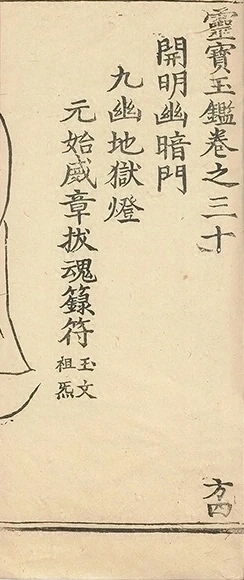 靈寶玉鑑卷之三十
方四
開明幽暗門
九幽地獄燈
元始威章拔魂籙符
玉文
祖炁